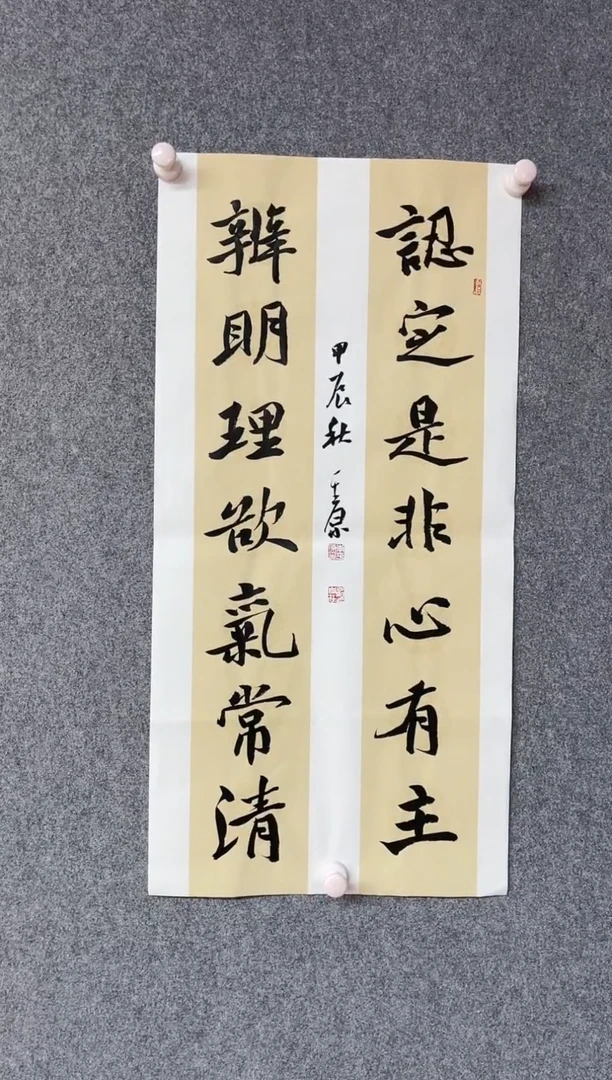 認定是非心有主
辨明理欲氣常清
甲辰秋